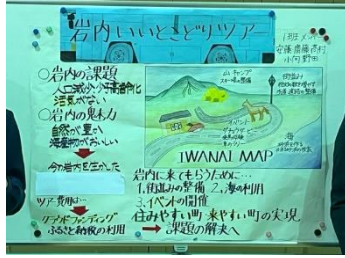 岩内いいとこどりツアー
1班メンバー
○岩内の課題
人口減少・少子高齢化
活気がない
○岩内の魅力
自然が豊か
海産物がおいしい
今の岩内を生かした
ツアー費用は…
クラウドファンディング
ふるさと納税の利用
キャンプ
スキー場の整備
街並み
イベント
海
IWANAI MAP
岩内に来てもらうために…
1.街並みの整備 2.海の利用
3.イベントの開催
住みやすい町 来やすい町の実現
→ 課題の解決へ